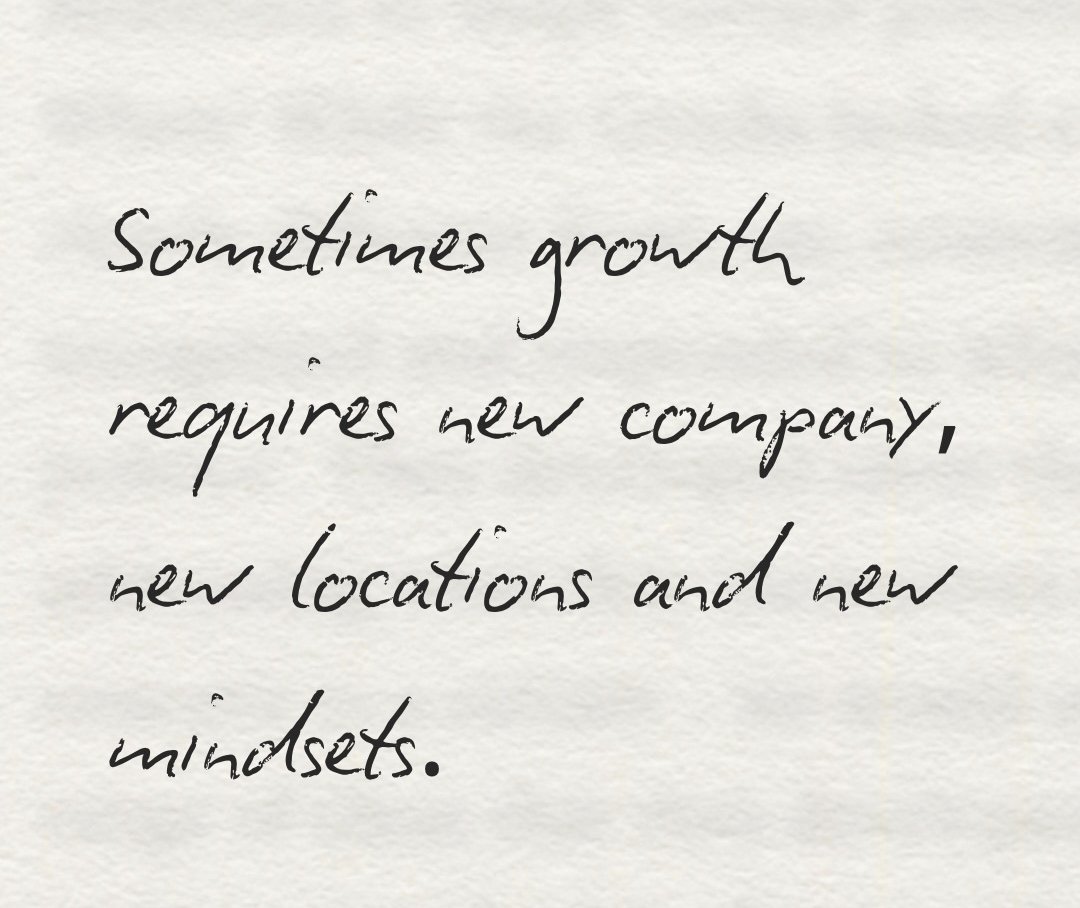 Sometimes growth
requires new company,
new locations and new
mindsets.